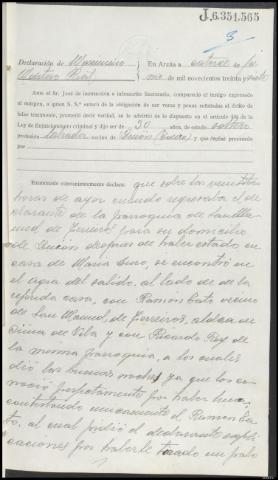 J.6.351.565
3
Declaración de Maximino
En Arzúa a catorce de ju
nio de mil novecientos treinta y
Ante el Sr. Juez de instrucción e infrascrito Secretario, compareció el testigo expresado
al margen, a quien S. S.ª enteró de la obligación de ser veraz y penas señaladas al delito de
falso testimonio, prometió decir verdad, se le advirtió de lo dispuesto en el artículo 436 de la
Ley de Enjuiciamiento criminal y dijo ser de 30 años, de estado soltero
profesión labrador vecino de y que ha sido procesado
por
Examinado convenientemente declara: que sobre las veintitrés
horas de ayer cuando regresaba el de
clarante de la parroquia de San Ma
med de Ferreiros para su domicilio
de después de haber estado en
casa de María se encontró en
el agra del salido, al lado de de la
referida casa, con Ramón Cato vecino
de San Mamed de Ferreiros, aldea de
Cima de Vila y con Ricardo Rey de
la misma parroquia, a los cuales
dió las buenas noches ya que los co
noció perfectamente por haber luna,
contestando unicamente el Ramon Ca
to, al cual pidió el declarante expli
caciones por haberle tirado un palo